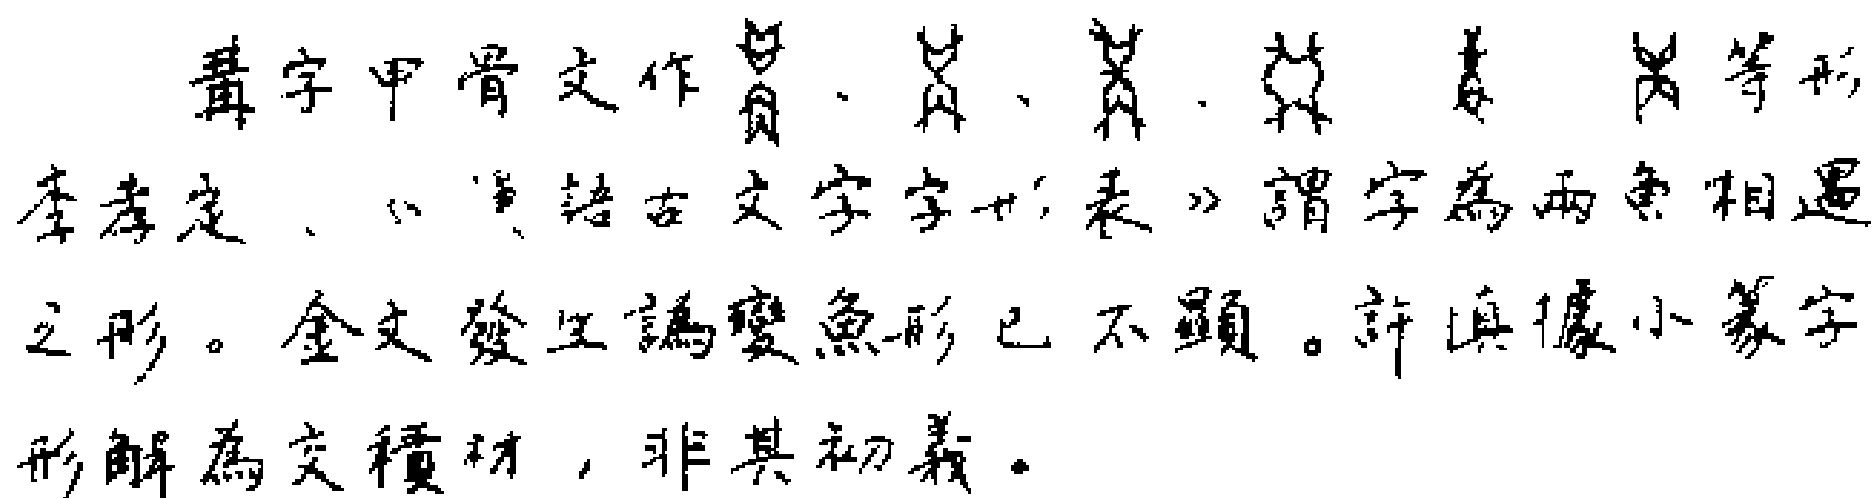 冓字甲骨文作、、、等形
李孝定、《漢語古文字字形表》謂字為兩魚相遇
之形。金文發生譌變魚形已不顯。許慎據小篆字
形解為交積材，非其初義。